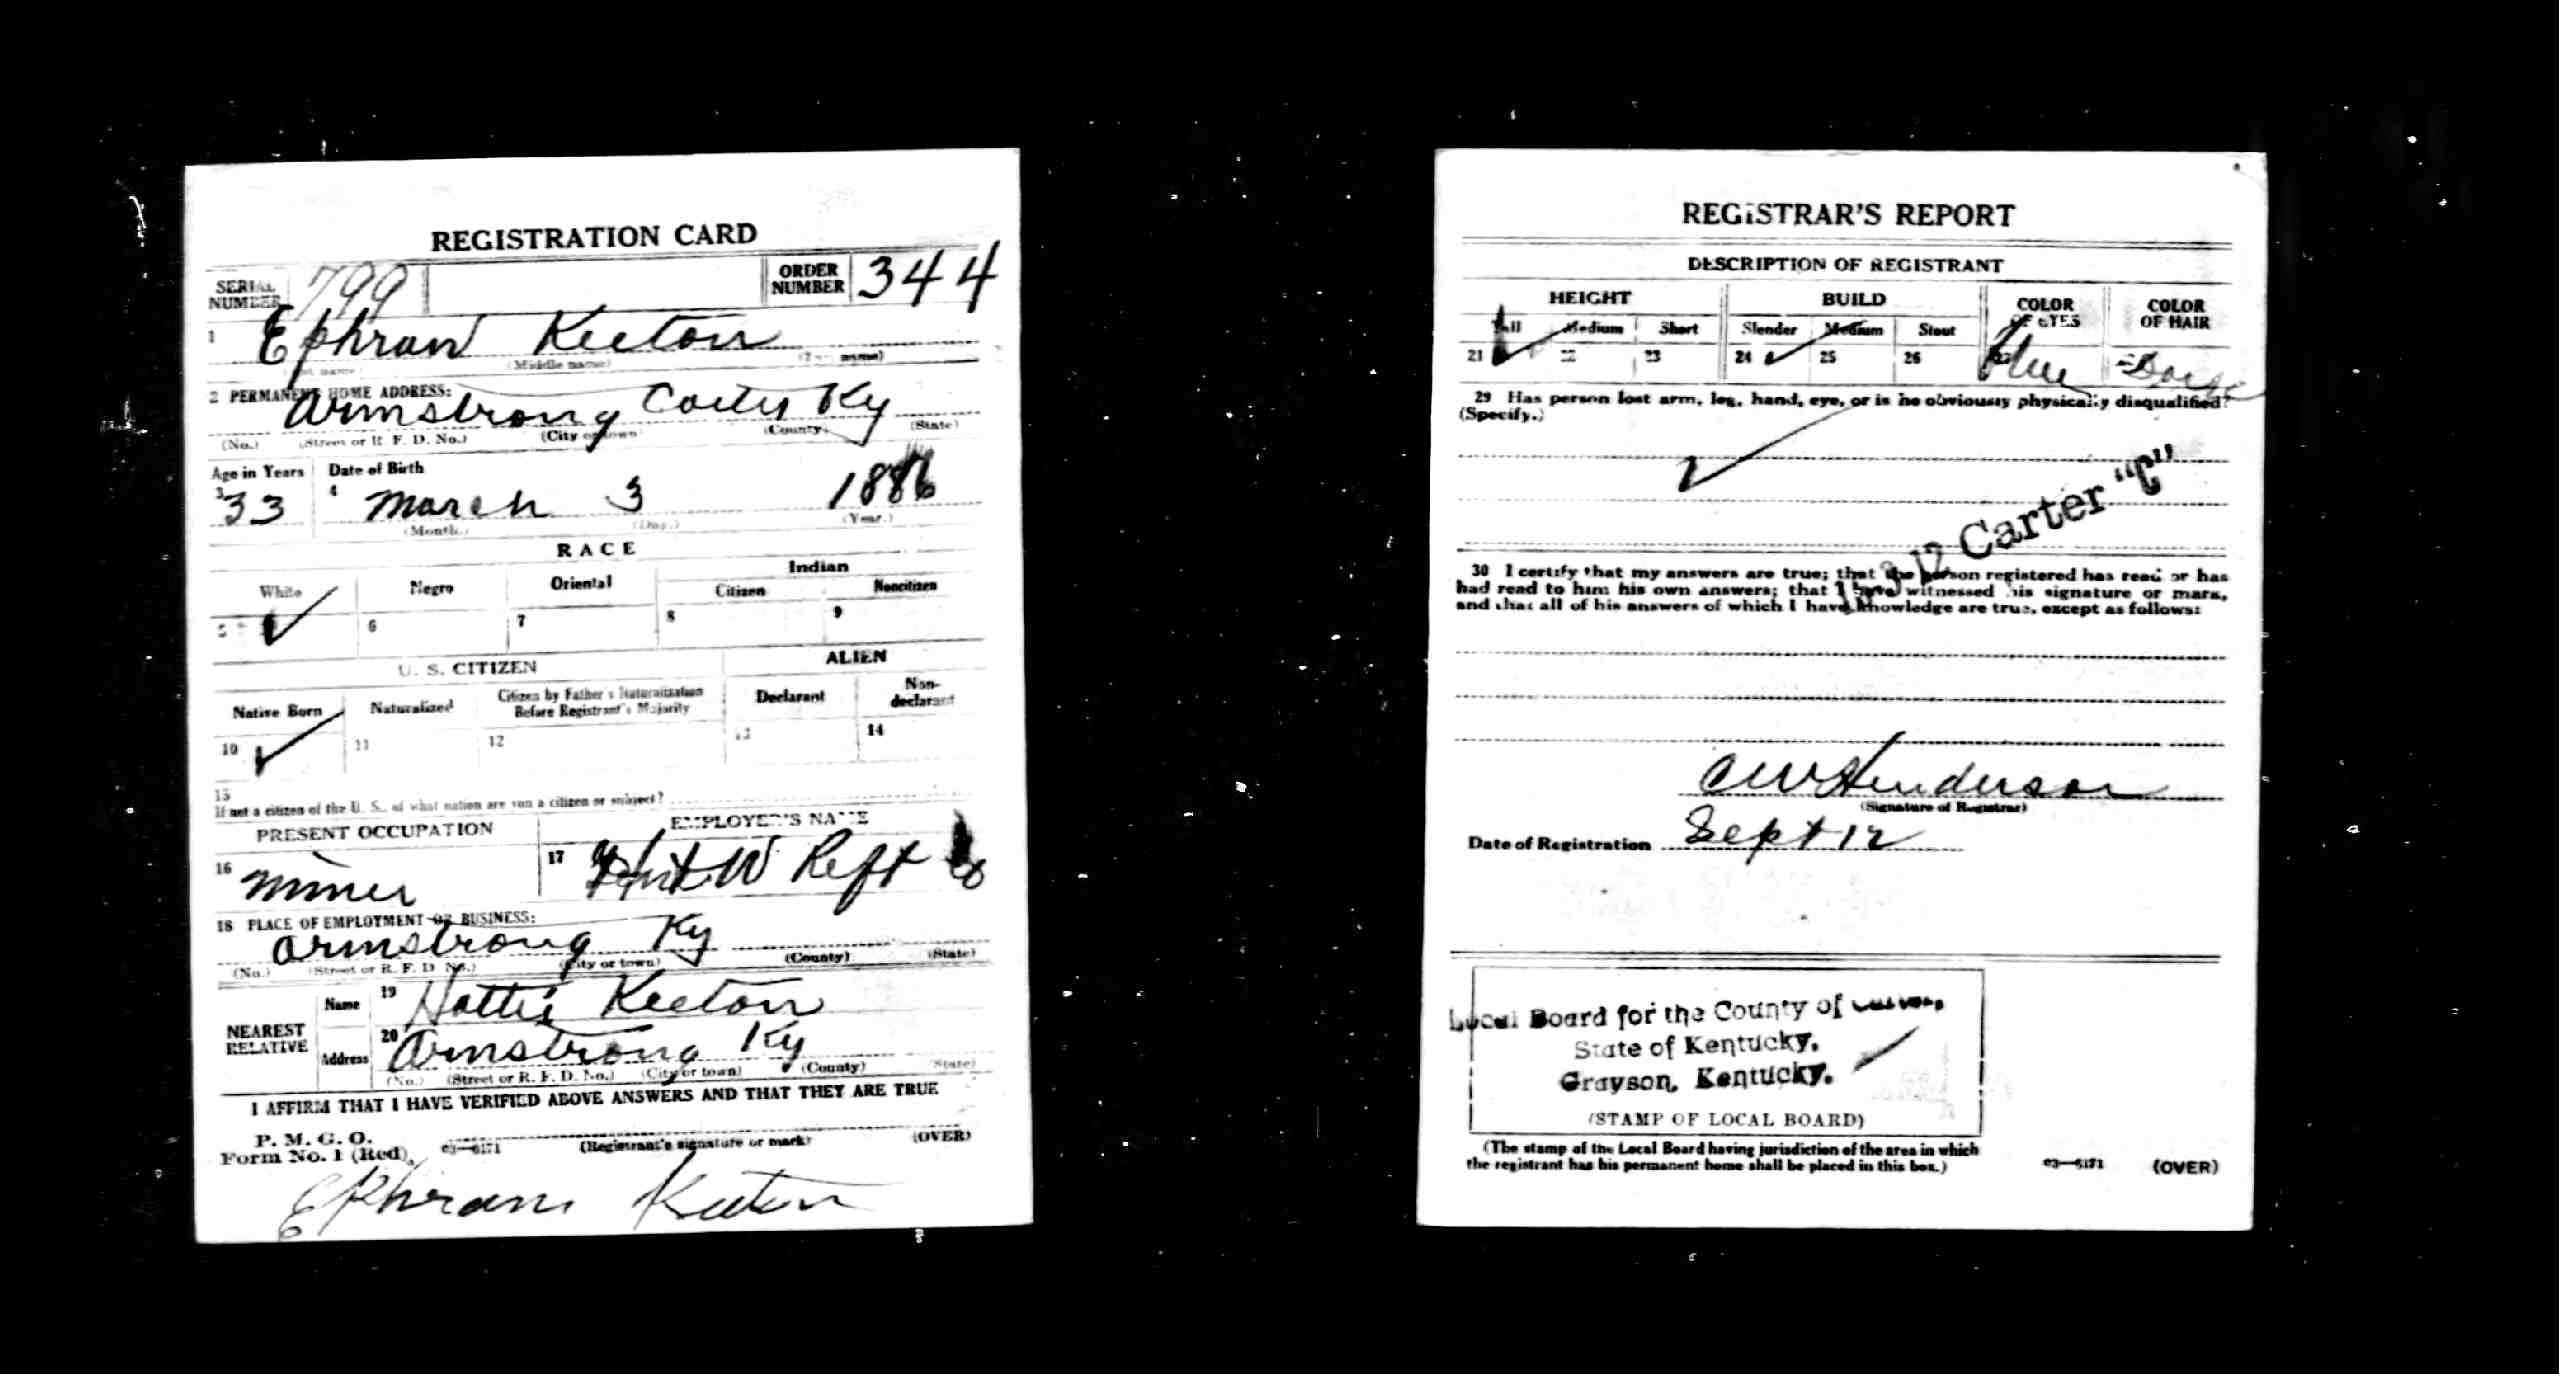 REGISTRATION CARD
SERIAL NUMBER 799 ORDER NUMBER 344
1 Ephram Keeton
(Middle name) name)
2 PERMANENT HOME ADDRESS:
Armstrong Ky
(No.) (Street or R. F. D. No.) (City or town) (County) (State)
Age in Years Date of Birth
3 33 4 March 3 1886
(Month.) (Day.) (Year.)
RACE
White Negro Oriental Indian
Citizen Noncitizen
5 ✓ 6 7 8 9
U. S. CITIZEN ALIEN
Native Born Naturalized Citizen by Father's Naturalization Before Registrant's Majority Declarant Non-declarant
10 ✓ 11 12 13 14
15
If not a citizen of the U. S., of what nation are you a citizen or subject?
PRESENT OCCUPATION EMPLOYER'S NAME
16 Miner 17 W Reft Co
18 PLACE OF EMPLOYMENT OR BUSINESS:
Armstrong Ky
(No.) (Street or R. F. D. No.) (City or town) (County) (State)
NEAREST RELATIVE
Name 19 Hattie Keeton
Address 20 Armstrong Ky
(No.) (Street or R. F. D. No.) (City or town) (County) (State)
I AFFIRM THAT I HAVE VERIFIED ABOVE ANSWERS AND THAT THEY ARE TRUE
P. M. G. O.
Form No. 1 (Red) 03—6171 (Registrant's signature or mark) (OVER)
Ephram Keeton
REGISTRAR'S REPORT
DESCRIPTION OF REGISTRANT
HEIGHT BUILD COLOR OF EYES COLOR OF HAIR
Tall Medium Short Slender Medium Stout
21 ✓ 22 23 24 ✓ 25 26 27 Blue Dark
29 Has person lost arm, leg, hand, eye, or is he obviously physically disqualified?
(Specify.)
✓
Carter "C"
30 I certify that my answers are true; that the person registered has read or has
had read to him his own answers; that I have witnessed his signature or mark,
and that all of his answers of which I have knowledge are true, except as follows:
C W Henderson
(Signature of Registrar)
Date of Registration Sept 12
Local Board for the County of Carter,
State of Kentucky,
Grayson, Kentucky.
(STAMP OF LOCAL BOARD)
(The stamp of the Local Board having jurisdiction of the area in which
the registrant has his permanent home shall be placed in this box.)
03—6171 (OVER)